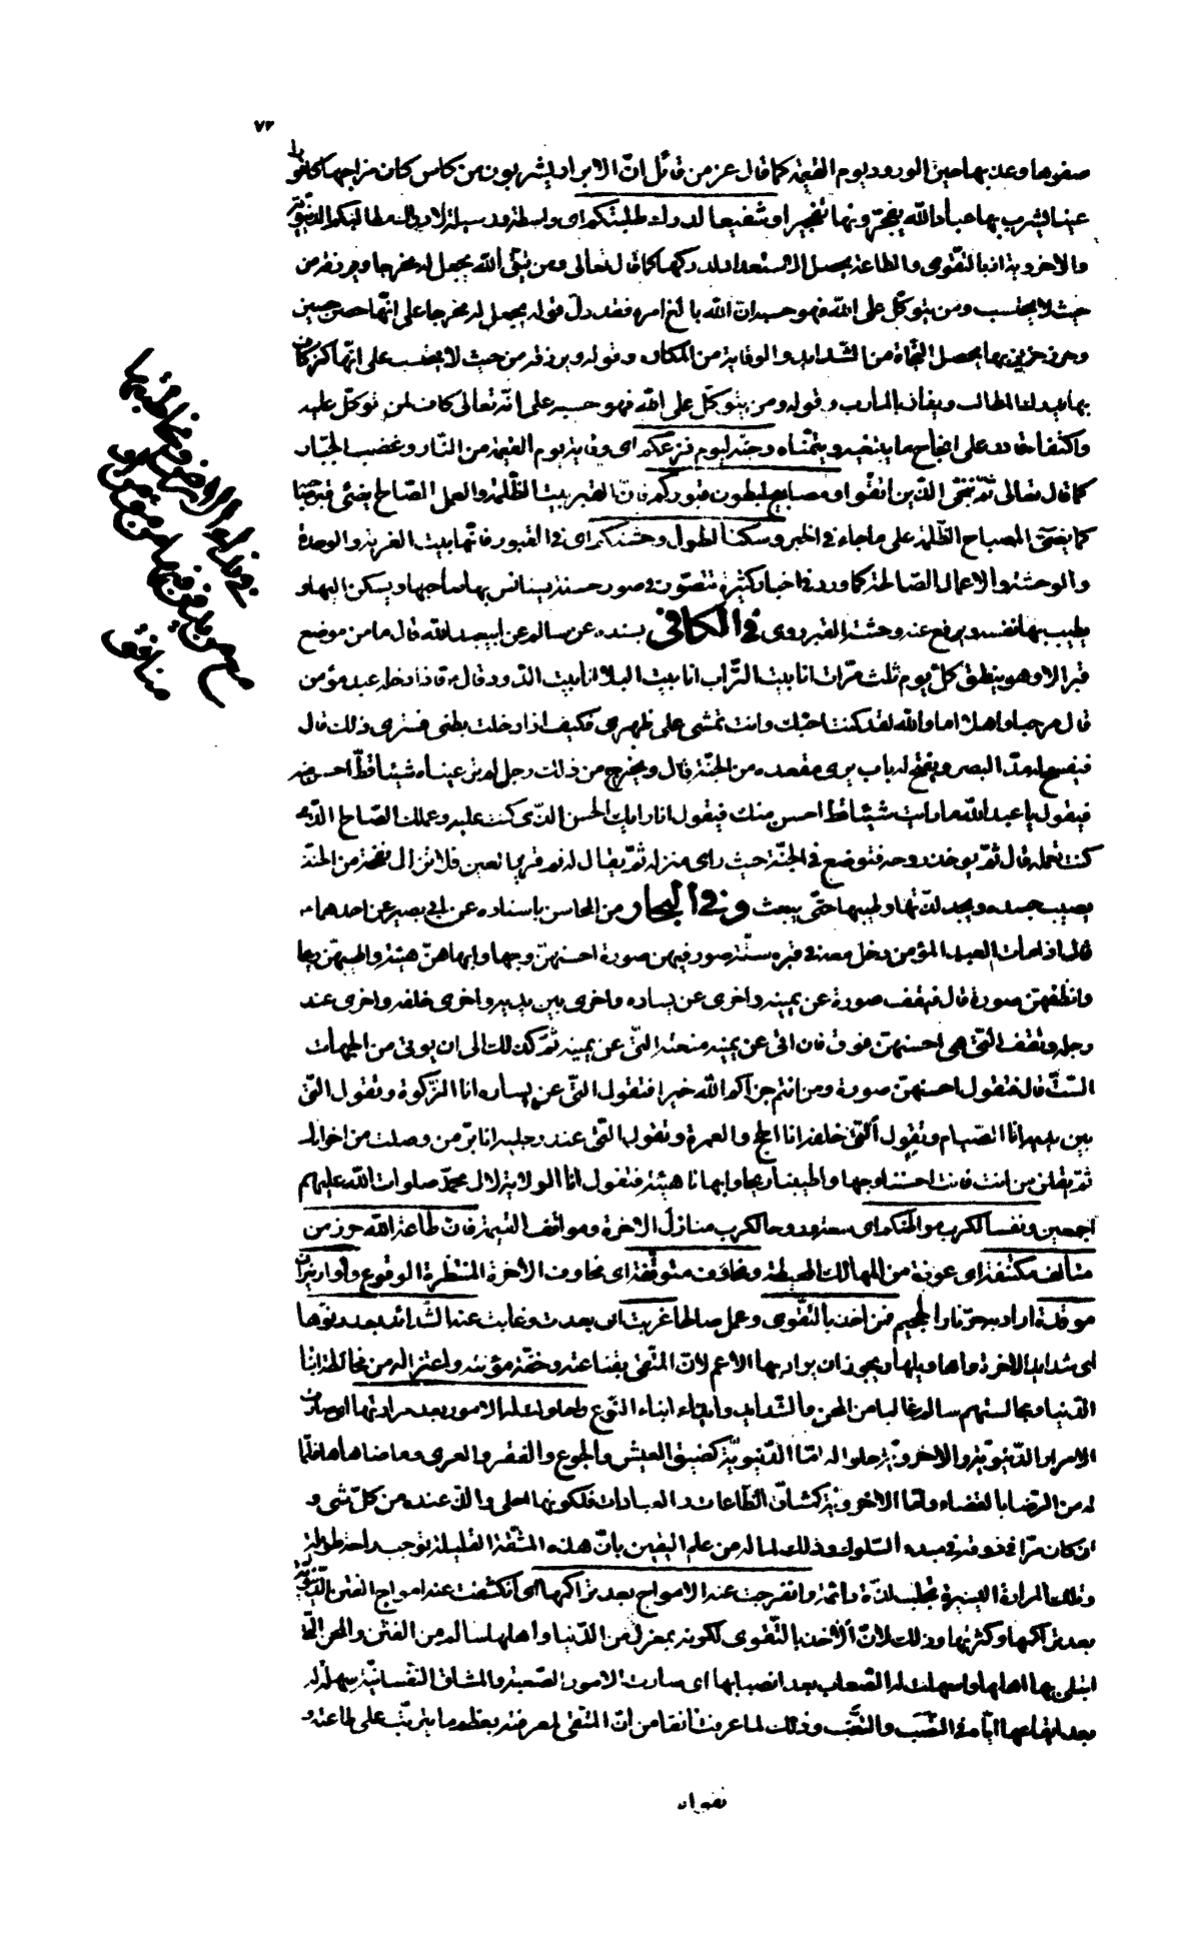 ٧٣
صفوها وعذبها حين الورود يوم القيمة كما قال عز من قائل انّ الابرار يشربون من كاس كان مزاجها كافورا
عينا يشرب بها عباد الله يفجّرونها تفجيرا وشفيعا لدرك طلبتكم اى واسطة ووسيلة لادراك مطالبكم الدنيويّة
والاخروية اذ بالتقوى والطاعة يحصل الاستعداد لدركها كما قال تعالى ومن يتّق الله يجعل له مخرجا ويرزقه من
حيث لا يحتسب ومن يتوكّل على الله فهو حسبه انّ الله بالغ امره فقد دلّ قوله يجعل له مخرجا على انّها حصن حصين
وحرز حريز بها يحصل النّجاة من الشّدايد والوقاية من المكاره وقوله ويرزقه من حيث لا يحتسب على انّها كنز كاف
بها يدرك المطالب ويفاز بالمآرب وقوله ومن يتوكّل على الله فهو حسبه على انّه تعالى كاف لمن توكّل عليه
واكتفا به قادر على انجاح ما يبتغيه ويتمنّاه وجنّة ليوم فزعكم اى وقاية يوم القيمة من النّار وغضب الجبّار
كما قال تعالى ثمّ ننجّى الذين اتّقوا ومصابيح لبطون قبوركم فانّ القبر بيت الظّلمة والعمل الصّالح يضئ قبر صاحبه
كما يضئ المصباح الظّلمة على ما جاء فى الخبر وسكنا لطول وحشتكم اى فى القبور فانّها بيت الغربة والوحدة
والوحشة والاعمال الصّالحة كما ورد فى اخبار كثيرة تتصوّر فى صور حسنة يستانس بها صاحبها ويسكن اليها و
يطيب بها نفسه ويرفع عنه وحشة القبر روى فى الكافى بسنده عن سالم عن ابيعبد الله قال ما من موضع
قبر الا وهو ينطق كلّ يوم ثلث مرّات انا بيت التّراب انا بيت البلا انا بيت الدّود قال فاذا دخله عبد مؤمن
قال مرحبا واهلا اما والله لقد كنت احبّك وانت تمشى على ظهرى فكيف اذا دخلت بطنى فسترى ذلك قال
فيفسح له مدّ البصر ويفتح له باب يرى مقعده من الجنّة قال ويخرج من ذلك رجل لم تر عيناه شيئا قطّ احسن منه
فيقول يا عبد الله ما رايت شيئا قطّ احسن منك فيقول انا رايك الحسن الّذى كنت عليه وعملك الصّالح الّذى
كنت تعمله قال ثمّ يؤخذ روحه فتوضع فى الجنّة حيث راى منزله ثمّ يقال له نم قرير العين فلا تزال نفحة من الجنّة
يصيب جسده ويجد لذّتها وطيبها حتّى يبعث وفى البحار من المحاسن باسناده عن ابى بصير عن احدهما
قال اذا مات العبد المؤمن دخل معه فى قبره ستّة صور فيهن صورة احسنهنّ وجها وابهاهنّ هيئة واطيبهنّ ريحا
وانظفهنّ صورة قال فيقف صورة عن يمينه واخرى عن يساره واخرى بين يديه واخرى خلفه واخرى عند
رجله وتقف الّتى هى احسنهنّ فوق فان اتى عن يمينه منعته الّتى عن يمينه ثمّ كذلك الى ان يؤتى من الجهات
السّتّ قال فتقول احسنهنّ صورة ومن انتم جزاكم الله خيرا فتقول الّتى عن يساره انا الزّكوة وتقول الّتى
بين يديه انا الصّيام وتقول الّتى خلفه انا الحج والعمرة وتقول الّتى عند رجليه انا برّ من وصلت من اخوانك
ثمّ يقلن من انت فانت احسننا وجها واطيبنا ريحا وابهانا هيئة فتقول انا الولاية لآل محمّد صلوات الله عليهم
اجمعين ونفسا لكرب مواطنكم اى سعة وروحا لكرب منازل الاخرة ومواقف القيمة فان طاعة الله حرز من
متألف مكتنفة اى عوذة من المهالك المحيطة ومخاوف متوقّعة اى مخاوف الاخرة المنتظرة الوقوع واوار نيران
موقدة اراد به حرّ نار الجحيم فمن اخذ بالتّقوى وعمل صالحا غربت اى بعدت وغابت عنه الشّدائد بعد دنوّها
اى شدايد الاخرة واهاويلها ويجوز ان يراد بها الاعم لانّ المتّقى بقناعته وخفّة مؤنته واعتزاله من مخالطة ابنا
الدّنيا ومجالستهم سالم غالبا من المحن والشّدايد وايذاء ابناء النّوع واحلولت له الامور بعد مرارتها اى صارت
الامور الدّنيويّة والاخرويّة حلوا له امّا الدّنيويّة كضيق العيش والجوع والفقر والعرى وما ضاهاها فلما
له من الرّضا بالقضاء وامّا الاخروية كمشاقّ الطّاعات والعبادات فلكونها احلى والذّ عنده من كلّ شى و
ان كان مرّا فى ذوقه فى مبدء السّلوك وذلك لما له من علم اليقين بانّ هذه المشقّة القليلة توجب راحة طويلة
وتلك المرارة اليسيرة تجلب لذّة دائمة وانفرجت عنه الامواج بعد تراكمها اى انكشفت عنه امواج الفتن الدّنيويّة
بعد تراكمها وكثرتها وذلك لانّ الاخذ بالتّقوى لكونه بمعزل من الدّنيا واهلها سالم من الفتن والمحن الّتى
ابتلى بها اهلها واسهلت له الصّعاب بعد انصبابها اى صارت الامور الصّعبة والمشاق النّفسانيّة سهلة له
بعد ايقاعها ايّاه فى النّصب والتّعب وذلك لما عرفت آنفا من انّ المتّقى لمعرفته بعظم ما يترتّب على طاعته و